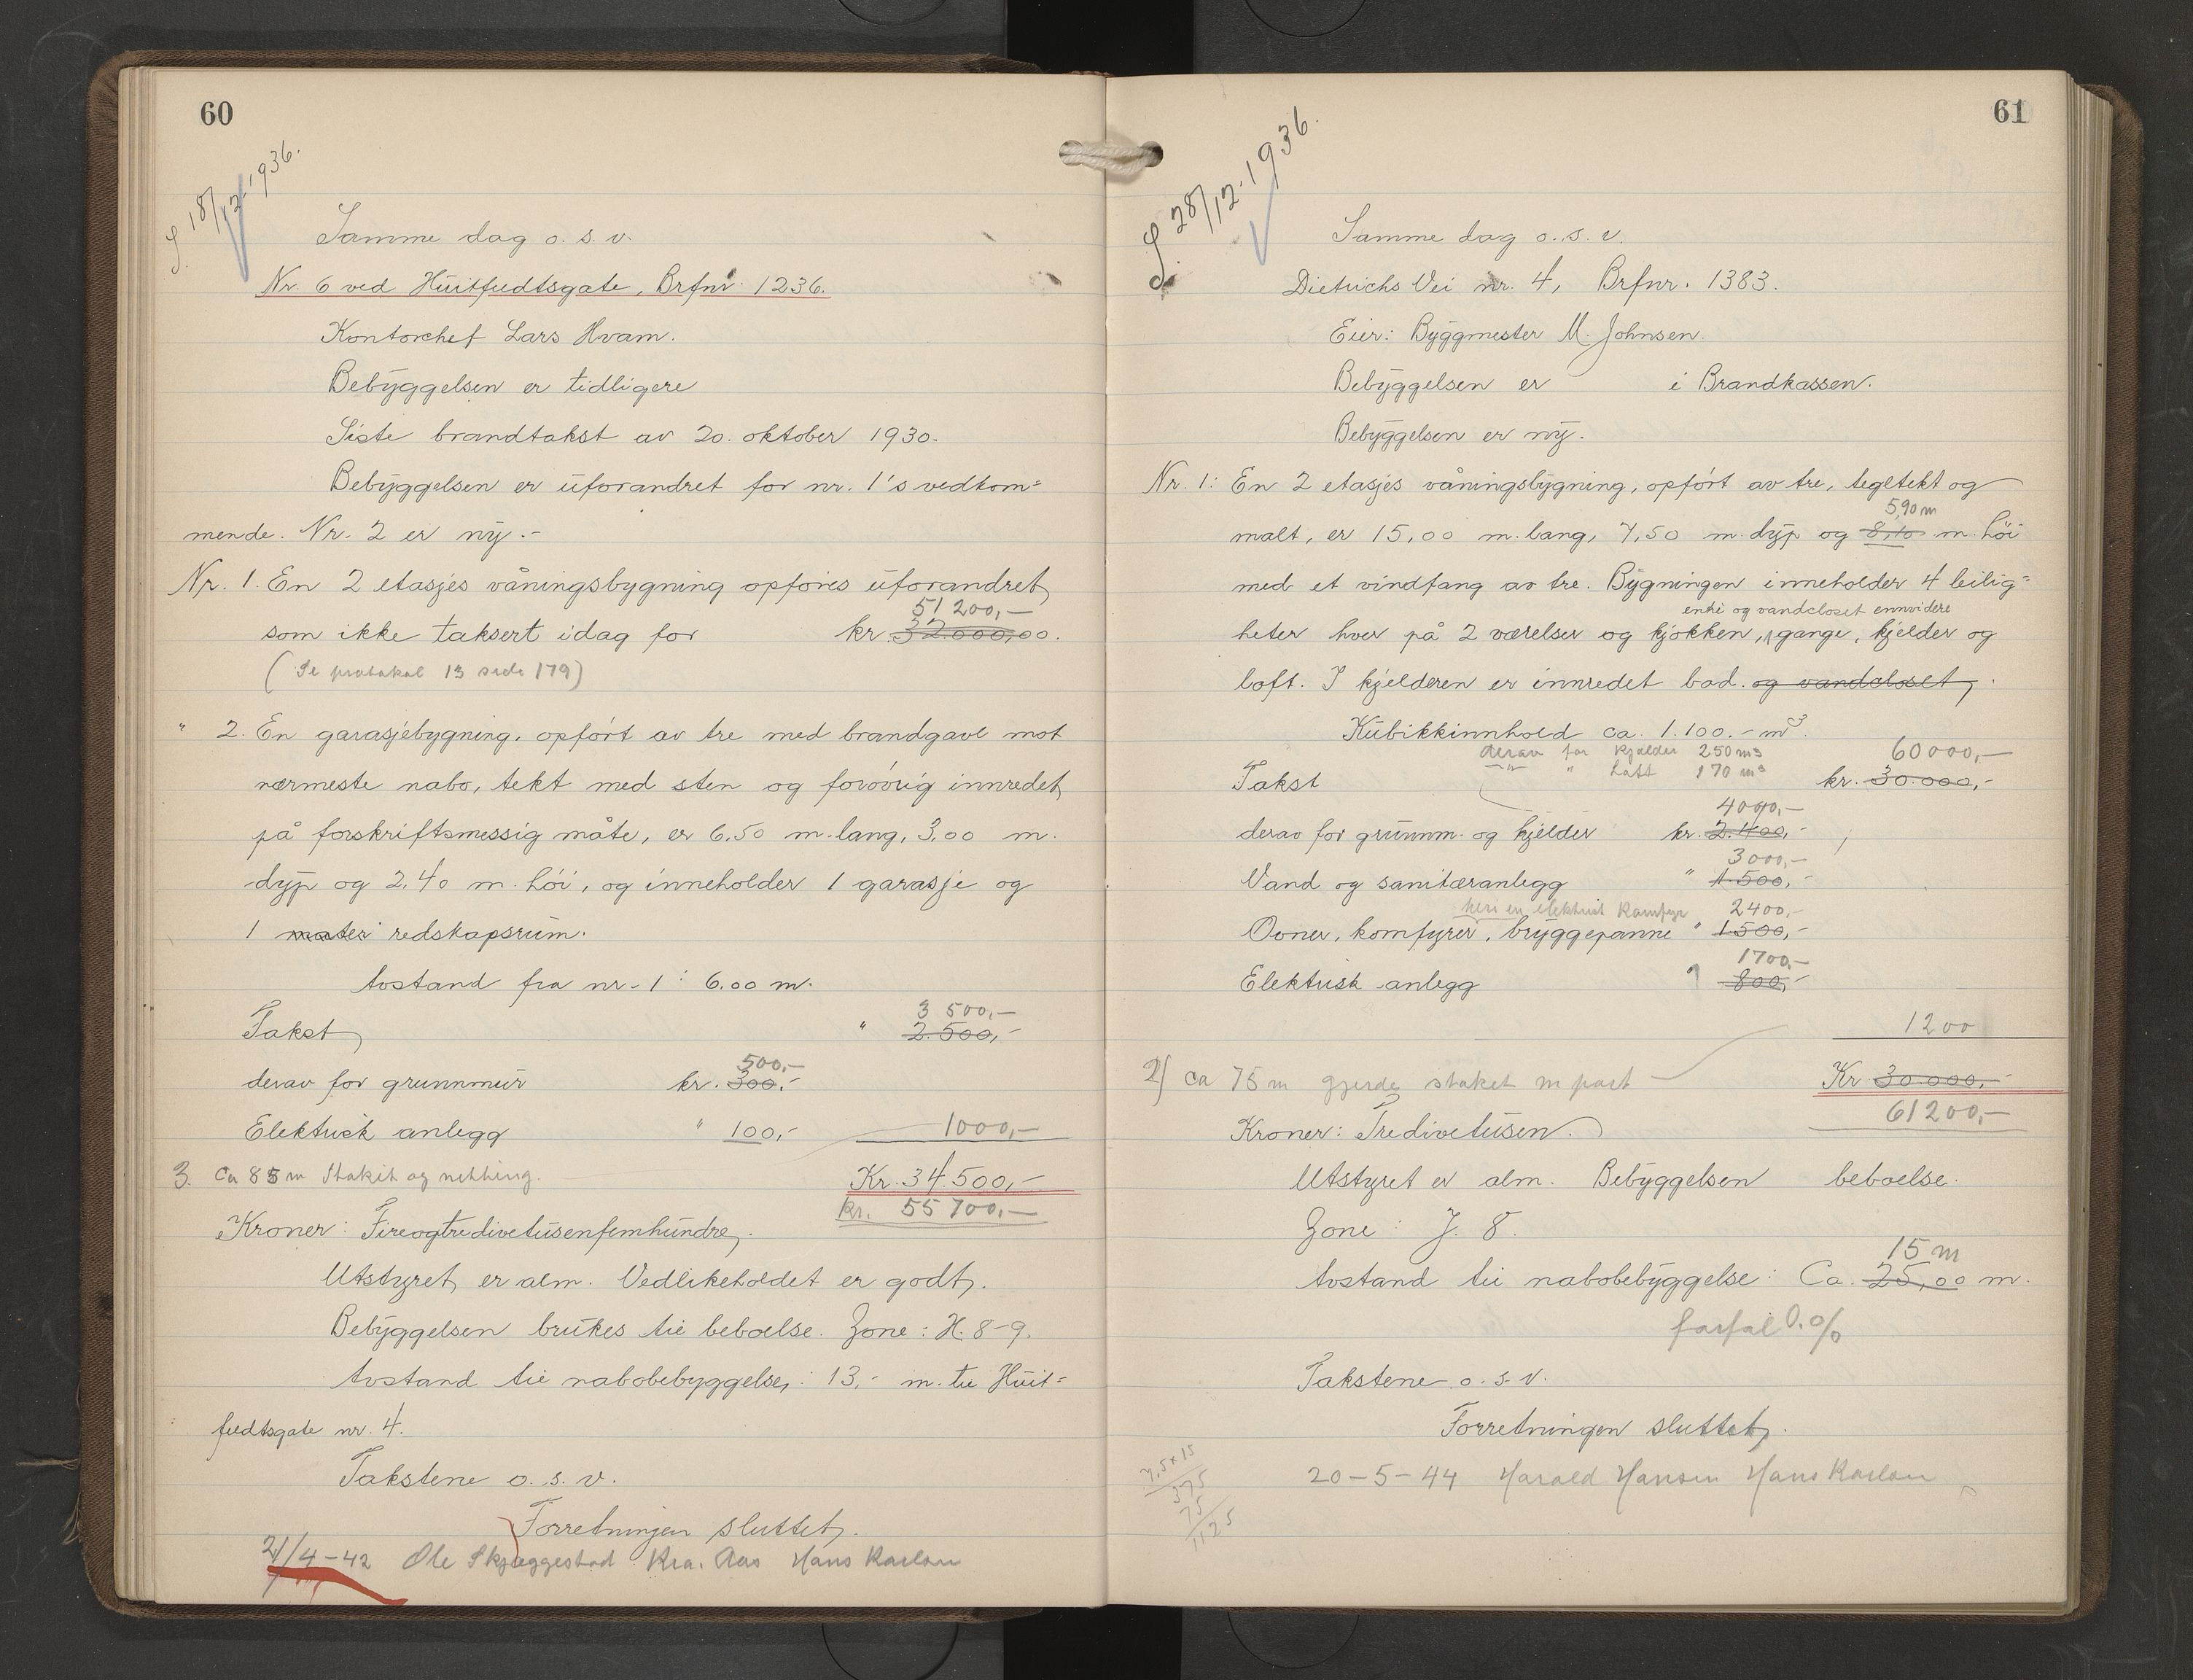 60
S. 18/12-1936.
Samme dag o. s. v.
Nr. 6 ved Huitfeldtsgate, Brfnr. 1236.
Kontorchef Lars Hvam.
Bebyggelsen er tidligere
Siste brandtakst av 20. oktober 1930.
Bebyggelsen er uforandret for nr. 1's vedkom=
mende. Nr. 2 er ny.-
Nr. 1. En 2 etasjes våningsbygning opføres uforandret
51 200,-
som ikke taksert idag for kr. 32.000,00.
(Se protokol 13 side 179)
" 2. En garasjebygning, opført av tre med brandgavl mot
nærmeste nabo, tekt med sten og forøvrig innredet
på forskriftsmessig måte, er 6,50 m. lang, 3,00 m.
dyp og 2,40 m. høi, og inneholder 1 garasje og
1 redskapsrum.
Avstand fra nr. 1: 6.00 m.
3 500,-
Takst " 2.500,-
500,-
derav for grunnmur kr. 300,-
Elektrisk anlegg " 100,- 1000,-
3. Ca 85 m Stakit og netting. Kr. 34.500,-
kr. 55 700,-
Kroner: Fireogtredivetusenfemhundre.
Utstyret er alm. Vedlikeholdet er godt.
Bebyggelsen brukes til beboelse. Zone: H. 8-9.
Avstand til nabobebyggelse: 13,- m. til Huit=
feldtsgate nr. 4.
Takstene o. s. v.
Forretningen sluttet.
21/4-42 Ole Skjæggestad Kra. Aas Hans Karlsen
61
S. 28/12-1936.
Samme dag o. s. v.
Dietrichs Vei nr. 4, Brfnr. 1383.
Eier: Byggmester M. Johnsen.
Bebyggelsen er i Brandkassen.
Bebyggelsen er ny.
Nr. 1: En 2 etasjes våningsbygning, opført av tre, tegltekt og
5,90 m
malt, er 15,00 m. lang, 7,50 m. dyp og 8,10 m. høi
med et vindfang av tre. Bygningen inneholder 4 leilig=
entré og vandcloset ennvidere
heter hver på 2 værelser og kjøkken, gange, kjelder og
loft. I kjelderen er innredet bad. og vandcloset.
Kubikkinnhold ca. 1.100.- m3.
derav for kjelder 250 m3 60000,-
" " Loft 170 m3
Takst kr. 30.000,-
4000,-
derav for grunnm. og kjelder kr. 2.400,-
3000,-
Vand og sanitæranlegg " 1.500,-
heri en elektrisk Komfyr 2400,-
Ovner, komfyrer, bryggepanne " 1500,-
1700,-
Elektrisk anlegg " 800,-
1200
2) ca 75 m gjerde staket m port Kr 30.000,-
61200,-
Kroner: Tredivetusen.
Utstyret er alm. Bebyggelsen beboelse.
Zone: J. 8.
15 m
Avstand til nabobebyggelse: Ca. 25,00 m.
forfal 0.%
Takstene o. s. v.
Forretningen sluttet.
20-5-44 Harald Hansen Hans Karlsen
7,5 x 15
375
75
1125